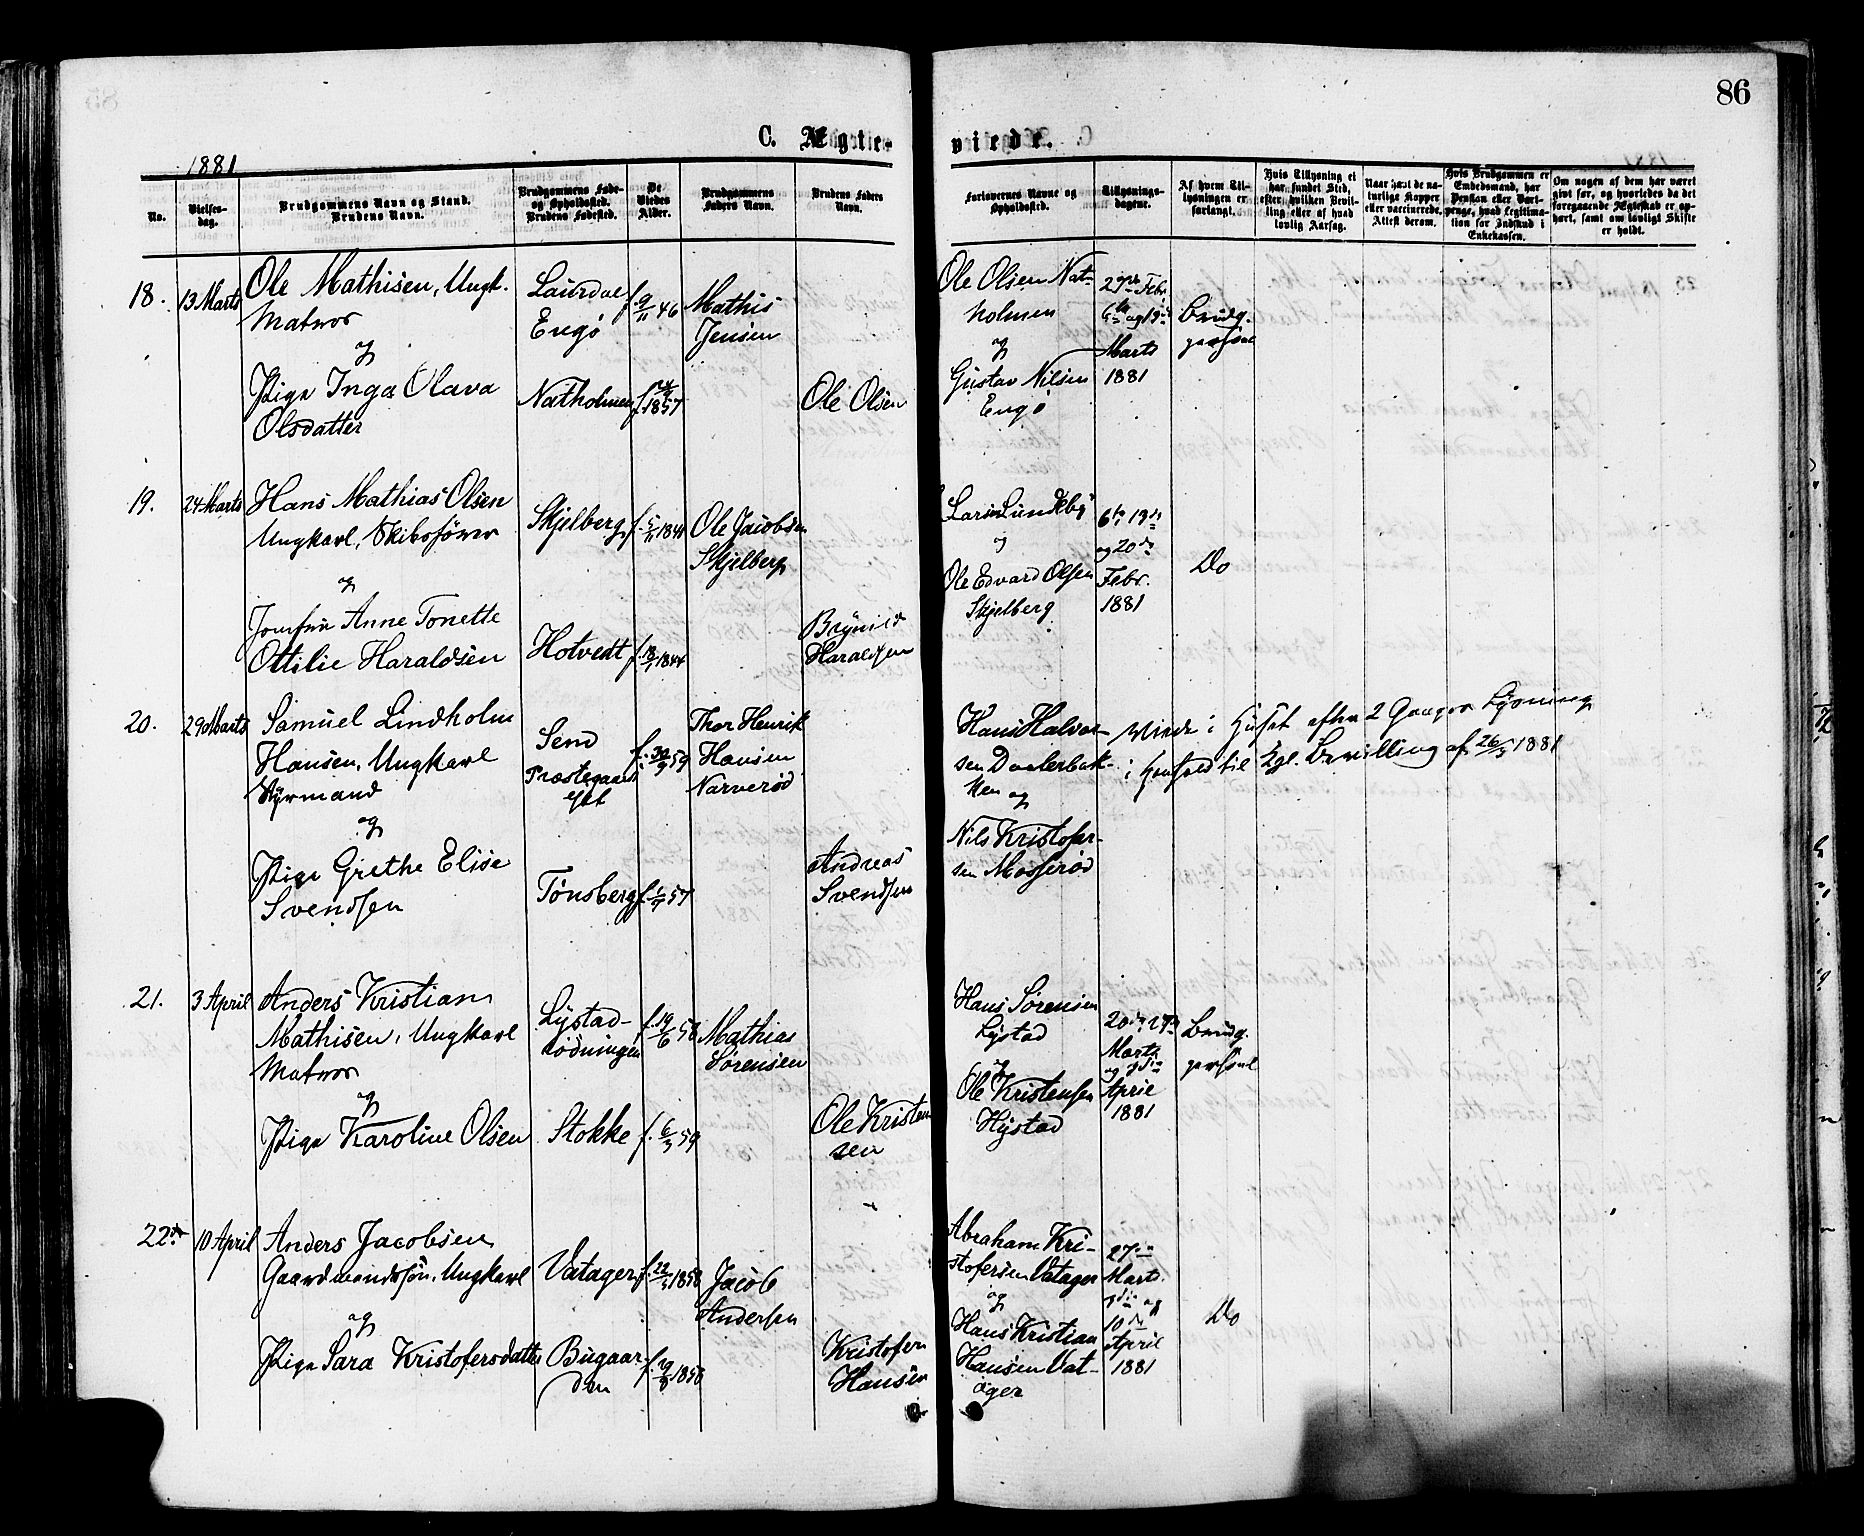 86
C. Ægte- viede.
1881
No.
Vielses-dag.
Brudgommens Navn og Stand. Brudens Navn.
Brudgommens Føde- og Opholdssted. Brudens Fødested.
De Viedes Alder.
Brudgommens Faders Navn.
Brudens Faders Navn.
Forlovernes Navne og Opholdssted.
Tillysnings-dagene.
Af hvem Til-lysningen er forlangt.
Hvis Tillysning ei har fundet Sted, efter hvilken Bevil-ling eller af hvad lovlig Aarsag.
Naar havt de na-turlige Kopper eller vaccinerede. Attest derom.
Hvis Brudgommen er Embedsmand, har Pension eller Vart-penge, hvad Legitima-tion for Indskud i Enkekassen.
Om nogen af dem har været gift før, og hvorledes da det foregaaende Ægteskab er op-hørt, samt om lovligt Skifte er holdt.
18. 13 Marts
Ole Mathisen, Ungk.
Matros
og
Pige Inga Olava
Olsdatter
Laurdal
Engø
Natholmen
f. 9/11 46
1857
Mathis
Jensen
Ole Olsen
Ole Olsen Nat-
holmen
og
Gustav Nilsen
Engø
27de Febr
6te og 13de
Marts
1881
Brudg.
personl
19. 24 Marts
Hans Mathias Olsen
Ungkarl, Skibsfører
og
Jomfru Anne Tonette
Ottilie Haraldsen
Skjelberg
Hotvedt
f. 18/1 1844
Ole Jacobsen
Skjelberg
Brynild
Haraldsen
Lars Lundeby
og
Ole Edvard Olsen
Skjelberg
6te 13de
og 20de
Febr.
1881
Do
20. 29 Marts
Samuel Lindholm
Hansen, Ungkarl
Styrmand
og
Pige Grethe Elise
Svendsen
Sem
Præstegaards
Tønsberg
f. 30/9 59
f. 1/7 57
Thor Henrik
Hansen
Narverød
Andreas
Svendsen
Hans Halvor-
sen
ken og
Nils Kristofer-
sen Mosserød
Viede i Huset efter 2 Ganges Lysning
i Henhold til Kgl. Bevilling af 26/3 1881
21. 3 April
Anders Kristian
Mathisen, Ungkarl
Matros
og
Pige Karoline Olsen
Lystad-
rødningen
Stokke
f. 19/6 58
f. 6/3 59
Mathias
Sørensen
Ole Kristen
sen
Hans Sørensen
Lystad
og
Ole Kristensen
Hystad
20de 27de
Marts
og 3die
April
1881
Brudg.
personl
22de 10 April
Anders Jacobsen
Gaardmandssøn, Ungkarl
og
Pige Sara Kristofersdatter
Vatager
Bugaar-
den
f. 22/5 1858
f. 19/8 1858
Jacob
Andersen
Kristofer
Hansen
Abraham Kri-
stofersen Vatager
og
Hans Kristian
Hansen Vat-
ager
27de
Marts
3die og
10de
April
1881
Do